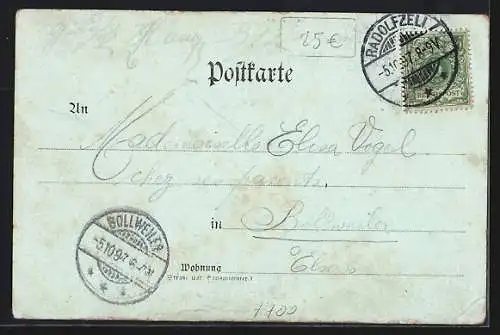 25€
RADOLFZELL
-5.10.97. 8-9V.
Postkarte
An
Mademoiselle Elisa Vogel
chez ses parents
in Bollweiler
BOLLWEILER
-5.10.97. 6-7N.
Wohnung
Elsass
(Straße und Hausnummer.)
1700